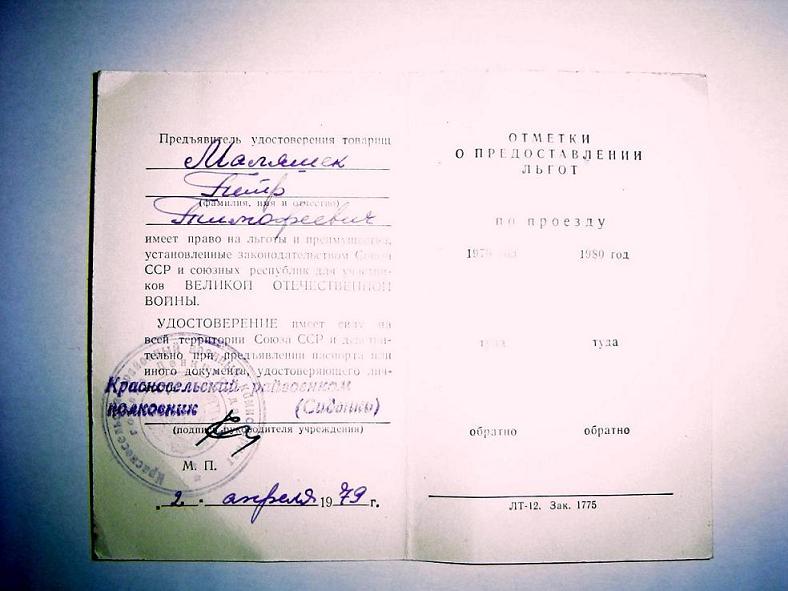 Предъявитель удостоверения товарищ
Маляшек
Петр
(фамилия, имя и отчество)
Тимофеевич
имеет право на льготы и преимущества,
установленные законодательством Союза
ССР и союзных республик для участни-
ков ВЕЛИКОЙ ОТЕЧЕСТВЕННОЙ
ВОЙНЫ.
УДОСТОВЕРЕНИЕ имеет силу на
всей территории Союза ССР и действи-
тельно при предъявлении паспорта или
иного документа, удостоверяющего лич-
Красносельский райвоенком
полковник (Сиденко)
(подпись руководителя учреждения)
М. П.
2 апреля 1979 г.
ОТМЕТКИ
О ПРЕДОСТАВЛЕНИИ
ЛЬГОТ
по проезду
1979 год 1980 год
туда туда
обратно обратно
ЛТ-12. Зак. 1775